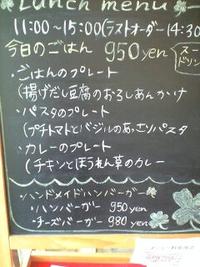 Lunch menu
11:00~15:00(ラストオーダー14:30
今日のごはん 950yen
スー
ドリン
・ごはんのプレート
(揚げだし豆腐のおろしあんかけ
・パスタのプレート
(プチトマトとバジルのあっさりパスタ
・カレーのプレート
(チキンとほうれん草のカレー
ハンドメイドハンバーガー
・ハンバーガー 950yen
・チーズバーガー 980yen